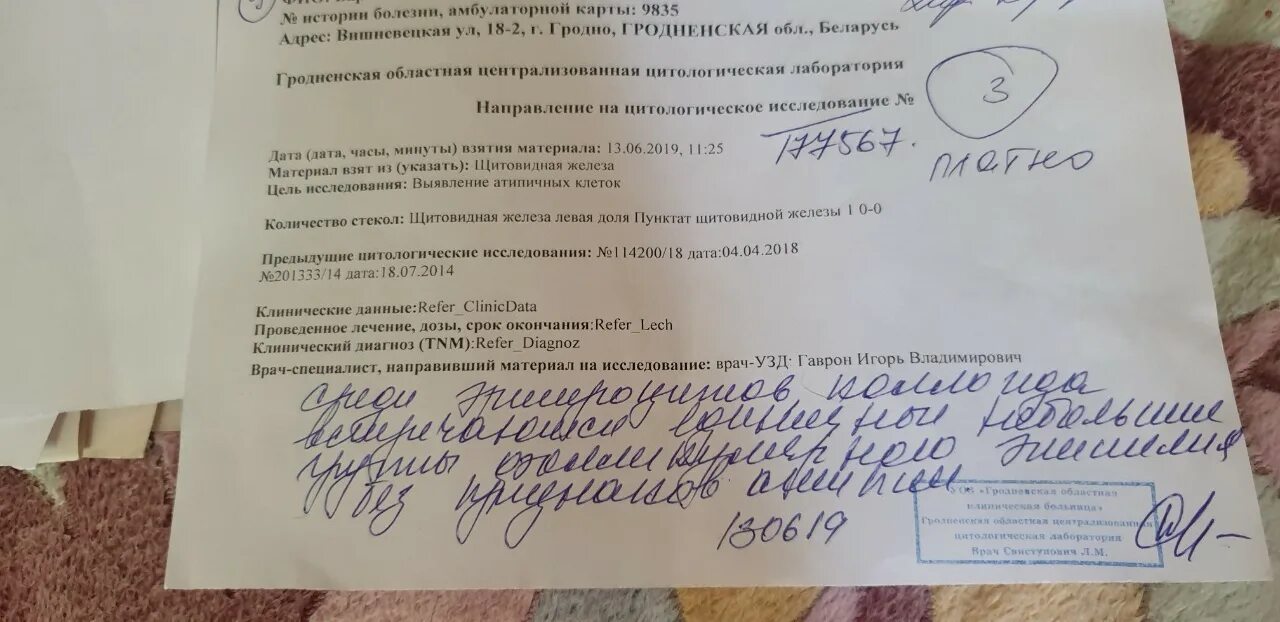 3
№ истории болезни, амбулаторной карты: 9835
Адрес: Вишневецкая ул, 18-2, г. Гродно, ГРОДНЕНСКАЯ обл., Беларусь
Гродненская областная централизованная цитологическая лаборатория
3
Направление на цитологическое исследование №
177567.
платно
Дата (дата, часы, минуты) взятия материала: 13.06.2019, 11:25
Материал взят из (указать): Щитовидная железа
Цель исследования: Выявление атипичных клеток
Количество стекол: Щитовидная железа левая доля Пунктат щитовидной железы 1 0-0
Предыдущие цитологические исследования: №114200/18 дата:04.04.2018
№201333/14 дата:18.07.2014
Клинические данные:Refer_ClinicData
Проведенное лечение, дозы, срок окончания:Refer_Lech
Клинический диагноз (TNM):Refer_Diagnoz
Врач-специалист, направивший материал на исследование: врач-УЗД: Гаврон Игорь Владимирович
среди эритроцитов коллоида
встречаются единичные небольшие
группы фолликулярного эпителия
без признаков атипии.
130619
УОЗ «Гродненская областная
клиническая больница»
Гродненская областная централизованная
цитологическая лаборатория
Врач Свистунович Л.М.